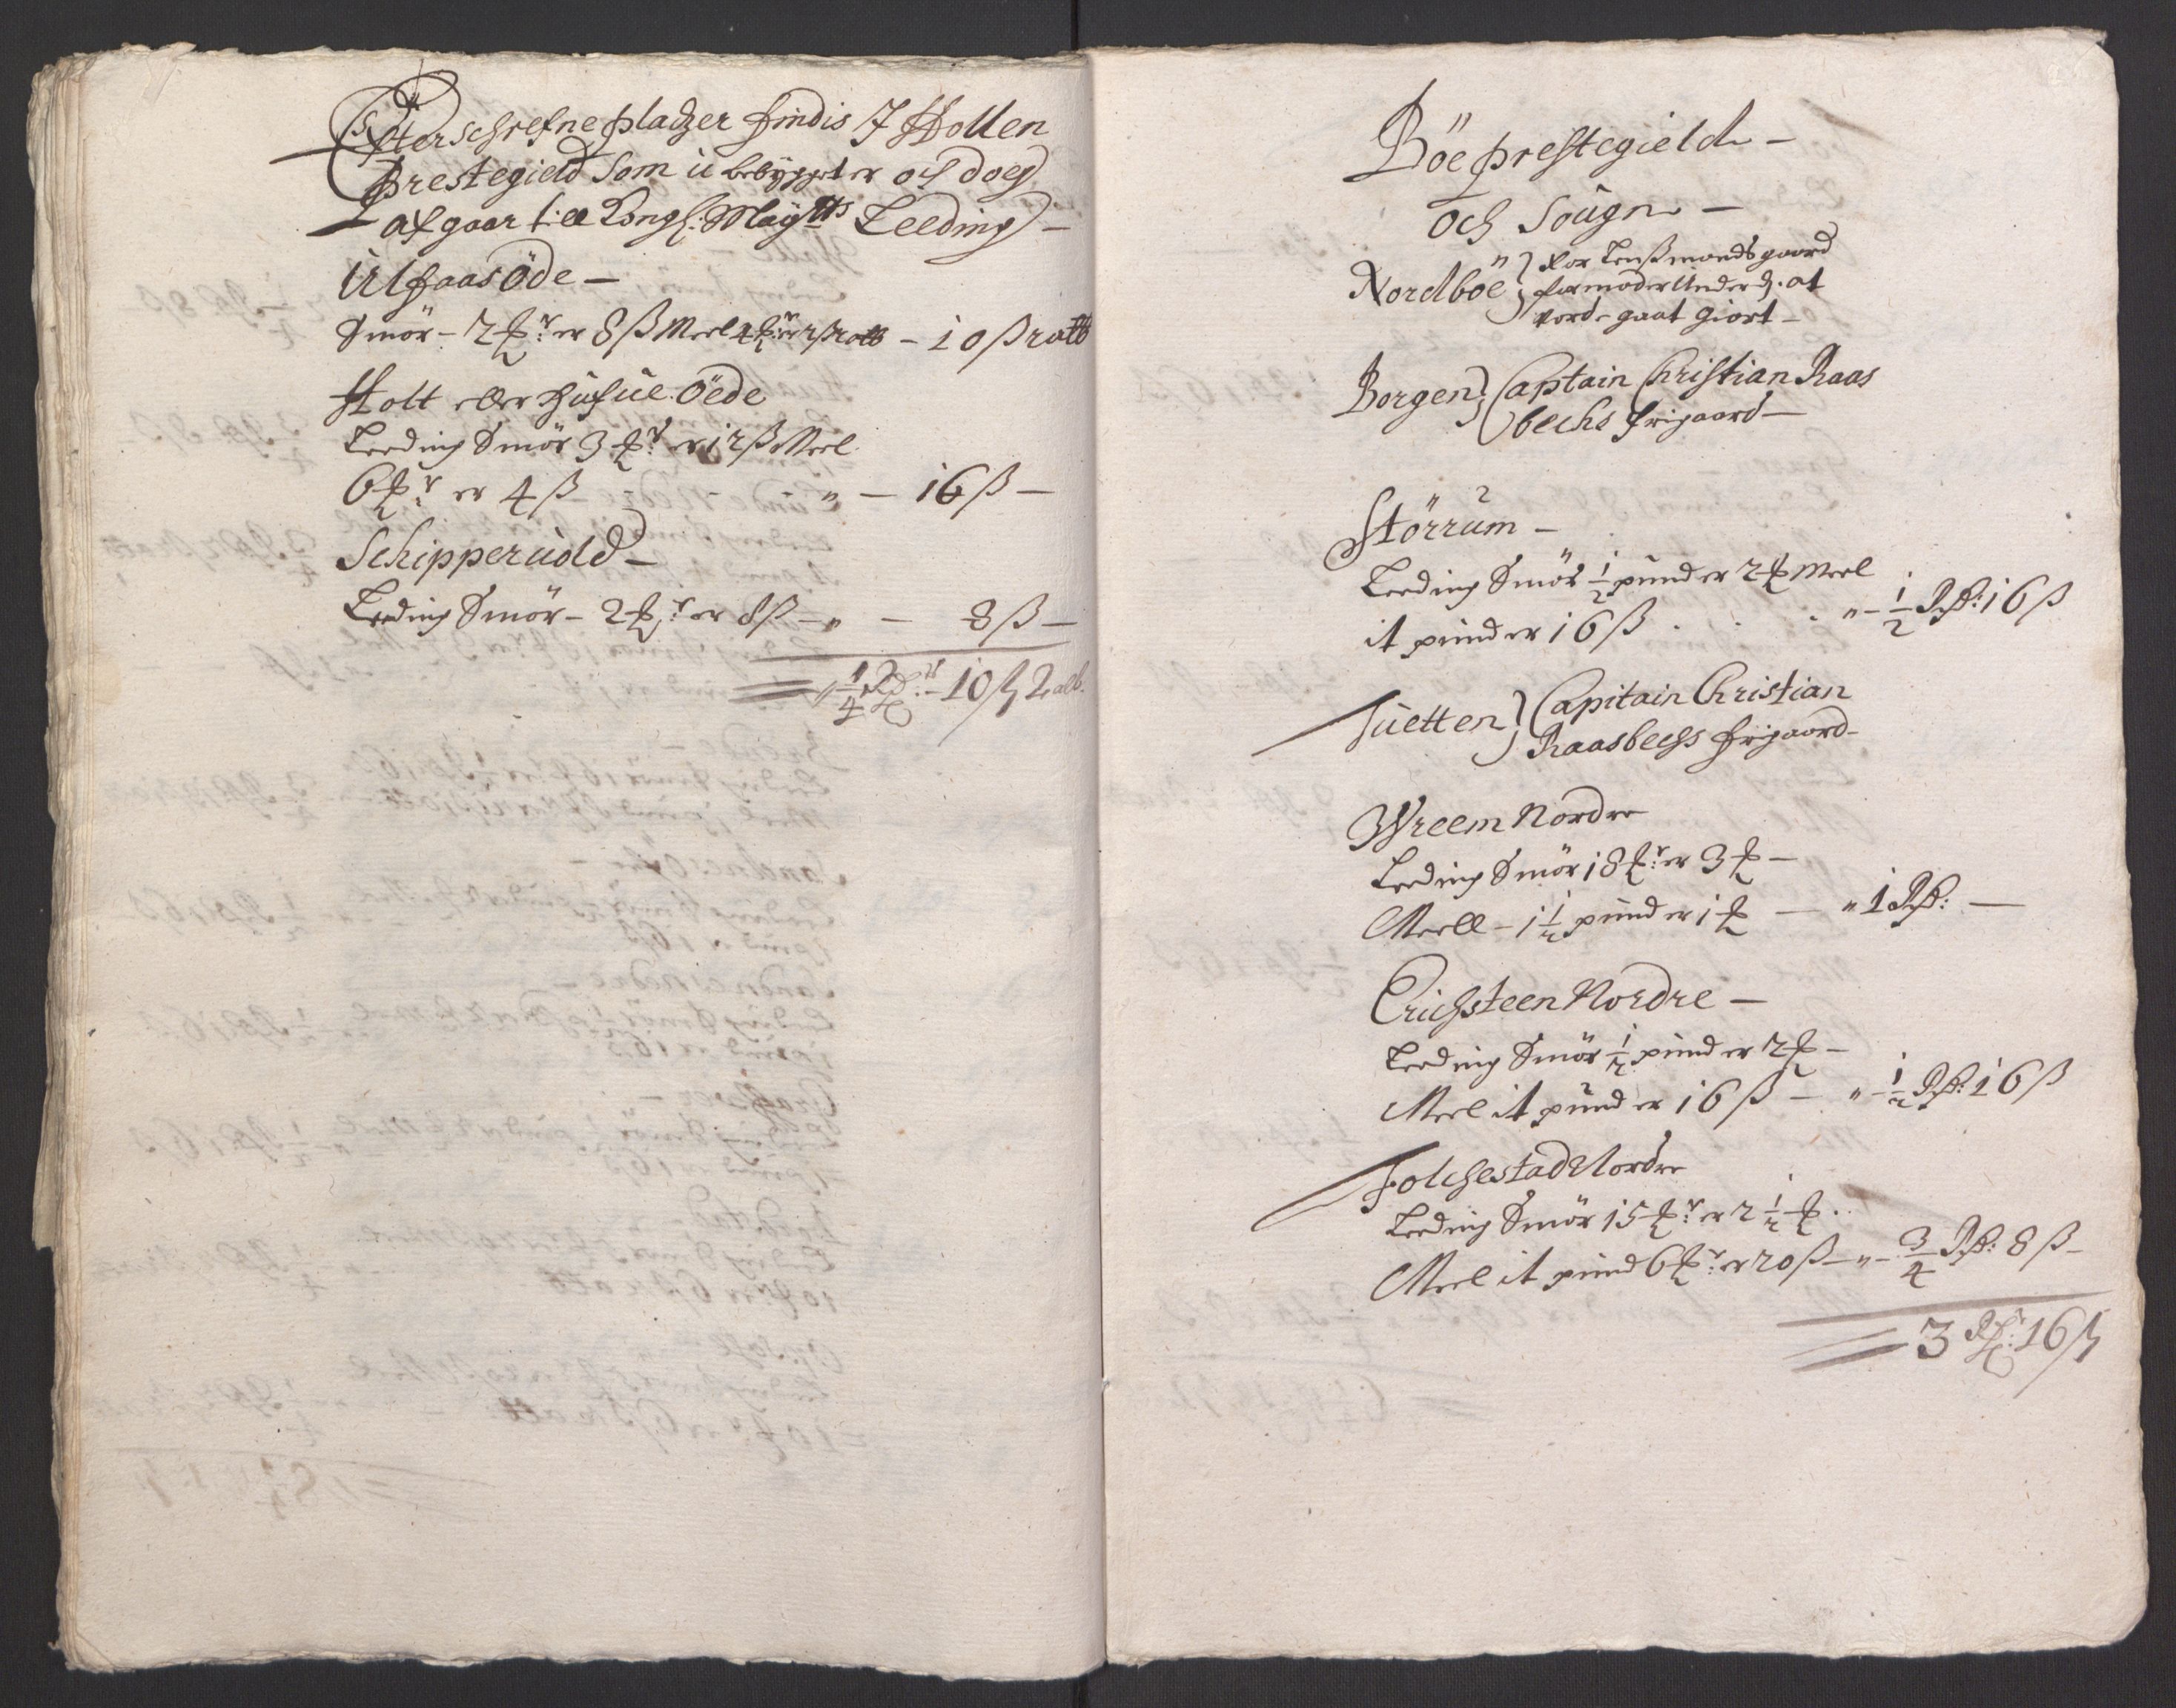 Efterschrefne pladzer findis J Hollen
prestegield Som ü bebÿgget er och doeg
afgaar till Kongl: Maÿtts Leeding –
Ulfaas Öde –
Smör – 2 ℔r: er 8 ß Meel 4 ℔r: er 2 ß 2 alb – 10 ß 2 alb
Holt eller Öede
Leeding Smör 3 ℔r: er 12 ß Meel
6 ℔r er 4 ß " – 16 ß –
Schipperüold –
Leding Smör – 2 ℔r: er 8 ß – " – 8 ß –
" ¼ Rdr: – 10 ß 2 alb.
Böe prestegield –
och Sougn –
Nordböe } for Lensmands gaard
formoder Under d. at
vorde gaat Giort –
Borgen } Captain Christian Raas
bechs frigaard –
Störrüm –
Leeding Smör ½ pünd er 2 ℔ Meel
it pünd er 16 ß . . . " – ½ Rd: 16 ß
Tüetten } Capitain Christian
Raasbechs frigaard –
Wreem Nordre
Leeding Smör 18 ℔r: er 3 ℔ –
Meell – 1 ½ pünd er 1 ℔ – " 1 Rd: –
Erichsteen Nordre –
Leeding Smör ½ pünd er 2 ℔ –
Meel it pünd er 16 ß – " – ½ Rd: 16 ß
Folchestad Nordre
Leeding Smör 15 ℔r: er 2 ½ ℔ . .
Meel it pünd 6 ℔r: er 20 ß – " – ¾ Rd: 8 ß –
3 Rdr: 16 ß